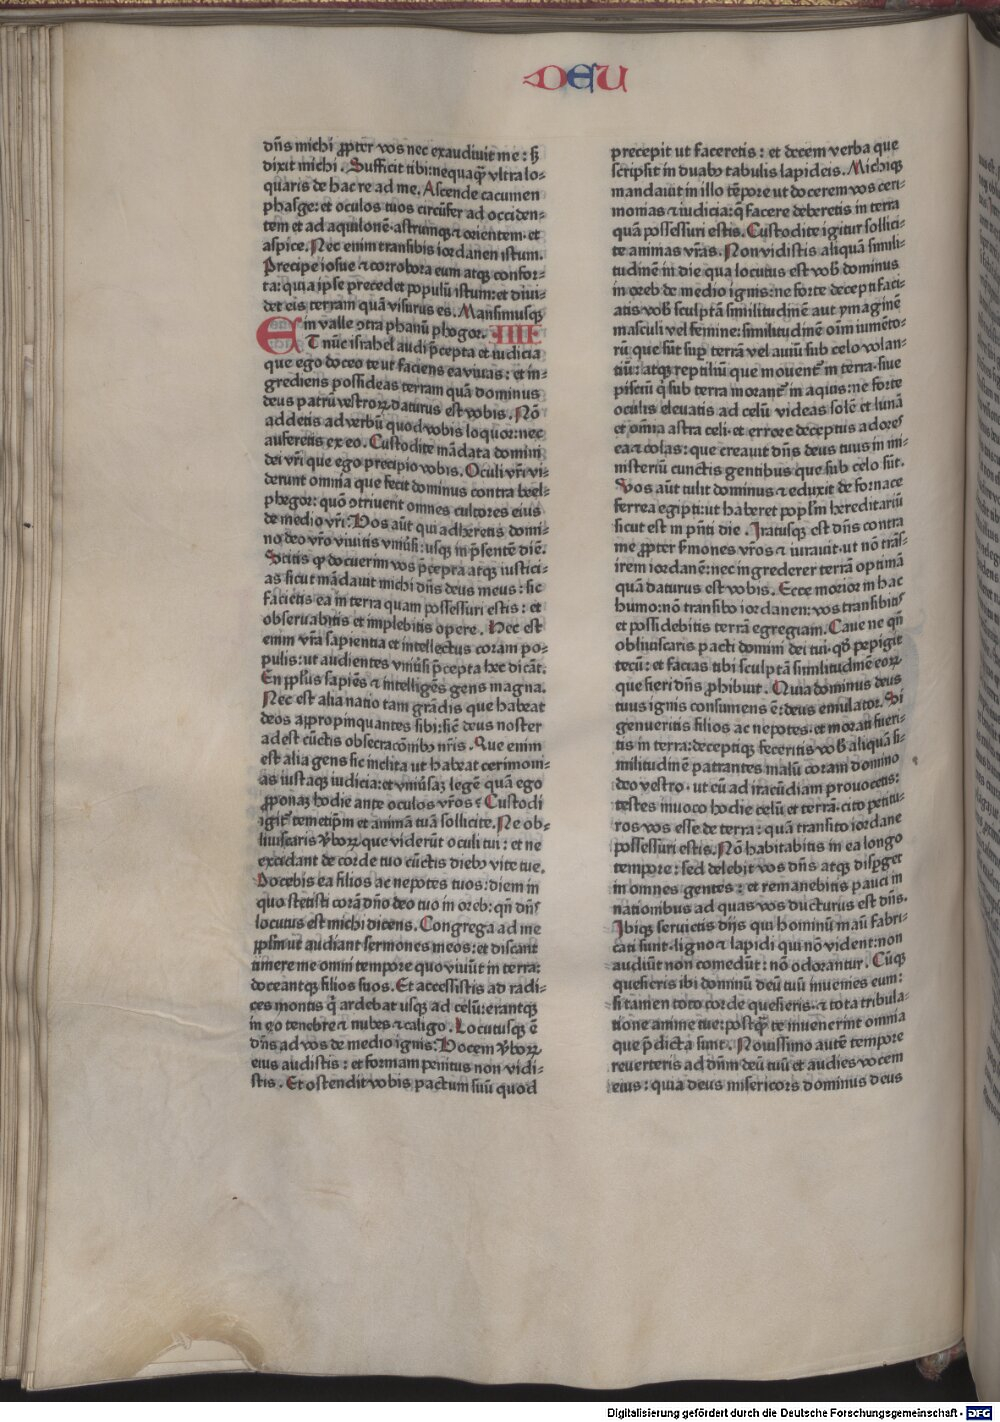 DEU
dn̄s michi ꝓpter vos nec exaudiuit me: sꝫ
dixit michi. Sufficit tibi: nequaꝙ̄ vltra lo-
quaris de hac re ad me. Ascende cacumen
phasge: et oculos tuos circūfer ad occiden-
tem et ad aquilonē· astrumqꝫ ⁊ orientem· et
aspice. Nec enim transibis iordanen istum.
Precipe iosue ⁊ corrobora eum atqꝫ confor-
ta: quia ipse precedet populū istum: et diui-
det eis terram quā visurus es. Mansimusqꝫ
in valle ↄtra phanū phogor. IIII
ET nūc israhel audi p̄cepta et iudicia
que ego doceo te ut faciens ea viuas: et in-
grediens possideas terram quā dominus
deus patrū vestroꝝ daturus est vobis. Nō
addetis ad verbū quod vobis loquor: nec
auferetis ex eo. Custodite mādata domini
dei vr̄i que ego precipio vobis. Oculi vr̄i vi-
derunt omnia que fecit dominus contra beel-
phegor: quō ↄtriuerit omnes cultores eius
de medio vr̄i. Vos aūt qui adheretis domi-
no deo vr̄o viuitis vniūsi: usqꝫ in p̄sentē diē.
Scitis ꝙ docuerim vos p̄cepta atqꝫ iustici-
as sicut mādauit michi dn̄s deus meus: sic
facietis ea in terra quam possessuri estis: et
obseruabitis et implebitis opere. Hec est
enim vr̄a sapientia et intellectus coram po-
pulis: ut audientes vniūsi p̄cepta hec dicāt.
En ppl̄us sapiēs ⁊ intelligēs gens magna.
Nec est alia natio tam grādis que habeat
deos appropinquantes sibi: sic̄ deus noster
adest cūctis obsecracōnibꝫ nr̄is. Que enim
est alia gens sic inclita ut habeat cerimoni-
as iustaqꝫ iudicia: et vniūsaꝫ legē quā ego
ꝓponaꝫ hodie ante oculos vr̄os? Custodi
igit᷑ temetip̄m et animā tuā sollicite. Ne ob-
liuiscaris v̄boꝝ que viderūt oculi tui: et ne
excidant de corde tuo cūctis diebꝫ vite tue.
Docebis ea filios ac nepotes tuos: diem in
quo stetisti corā dn̄o deo tuo in oreb: qn̄ dn̄s
locutus est michi dicens. Congrega ad me
ppl̄m ut audiant sermones meos: et discant
timere me omni tempore quo viuūt in terra:
doceantqꝫ filios suos. Et accessistis ad radi-
ces montis q̄ ardebat usqꝫ ad celū: erantqꝫ
in eo tenebre ⁊ nubes ⁊ caligo. Locutusqꝫ ē
dn̄s ad vos de medio ignis: Vocem v̄boꝝ
eius audistis: et formam penitus non vidi-
stis. Et ostendit vobis pactum suū quod
precepit ut faceretis: et decem verba que
scripsit in duabꝫ tabulis lapideis. Michiqꝫ
mandauit in illo tēpore ut docerem vos ceri-
monias ⁊ iudicia: q̄ facere deberetis in terra
quā possessuri estis. Custodite igitur sollici-
te animas vr̄as. Non vidistis aliquā simili-
tudinē in die qua locutus est vob̄ dominus
in oreb de medio ignis: ne forte decepti faci-
atis vob̄ sculptā similitudinē aut ymaginē
masculi vel femine: similitudinē oīm iumēto-
rū que sūt suꝑ terrā vel auiū sub celo volan-
tiū: atqꝫ reptiliū que mouent᷑ in terra· siue
pisciū q̄ sub terra morant᷑ in aquis: ne forte
oculis eleuatis ad celū videas solē et lunā
et om̄ia astra celi· et errore deceptus adores
ea ⁊ colas: que creauit dn̄s deus tuus in mi-
nisteriū cunctis gentibus que sub celo sūt.
Vos aūt tulit dominus ⁊ eduxit de fornace
ferrea egipti: ut haberet popl̄m hereditariū
sicut est in p̄nti die. Iratusqꝫ est dn̄s contra
me ꝓpter ẜmones vr̄os ⁊ iurauit· ut nō trās-
irem iordanē: nec ingrederer terrā optimā
quā daturus est vobis. Ecce morior in hac
humo: nō transibo iordanen: vos transibitis
et possidebitis terrā egregiam. Caue ne qn̄
obliuiscaris pacti domini dei tui· qd̄ pepigit
tecū: et facias tibi sculptā similitudinē eoꝝ
que fieri dn̄s ꝓhibuit. Quia dominus deus
tuus ignis consumens ē: deus emulator. Si
genueritis filios ac nepotes· et morati fueri-
tis in terra: deceptiqꝫ feceritis vob̄ aliquā si-
militudinē patrantes malū coram domino
deo vestro· ut eū ad iracūdiam prouocetis:
testes inuoco hodie celū et terrā· cito peritu-
ros vos esse de terra: quā transito iordane
possessuri estis. Nō habitabitis in ea longo
tempore: sed delebit vos dn̄s atqꝫ disp̱get
in omnes gentes: et remanebitis pauci in
nationibus ad quas vos ducturus est dn̄s.
Ibiqꝫ seruietis dijs qui hominū manū fabri-
cati sunt· ligno ⁊ lapidi qui nō vident: non
audiūt non comedūt: nō odorantur. Cūqꝫ
quesieris ibi dominū deū tuū inuenies eum:
si tamen toto corde quesieris· ⁊ tota tribula-
tione anime tue: postqꝙ̄ te inuenerint omnia
que p̄dicta sunt. Nouissimo autē tempore
reuerteris ad dn̄m deū tuū et audies vocem
eius: quia deus misericors dominus deus
Digitalisierung gefördert durch die Deutsche Forschungsgemeinschaft - DFG